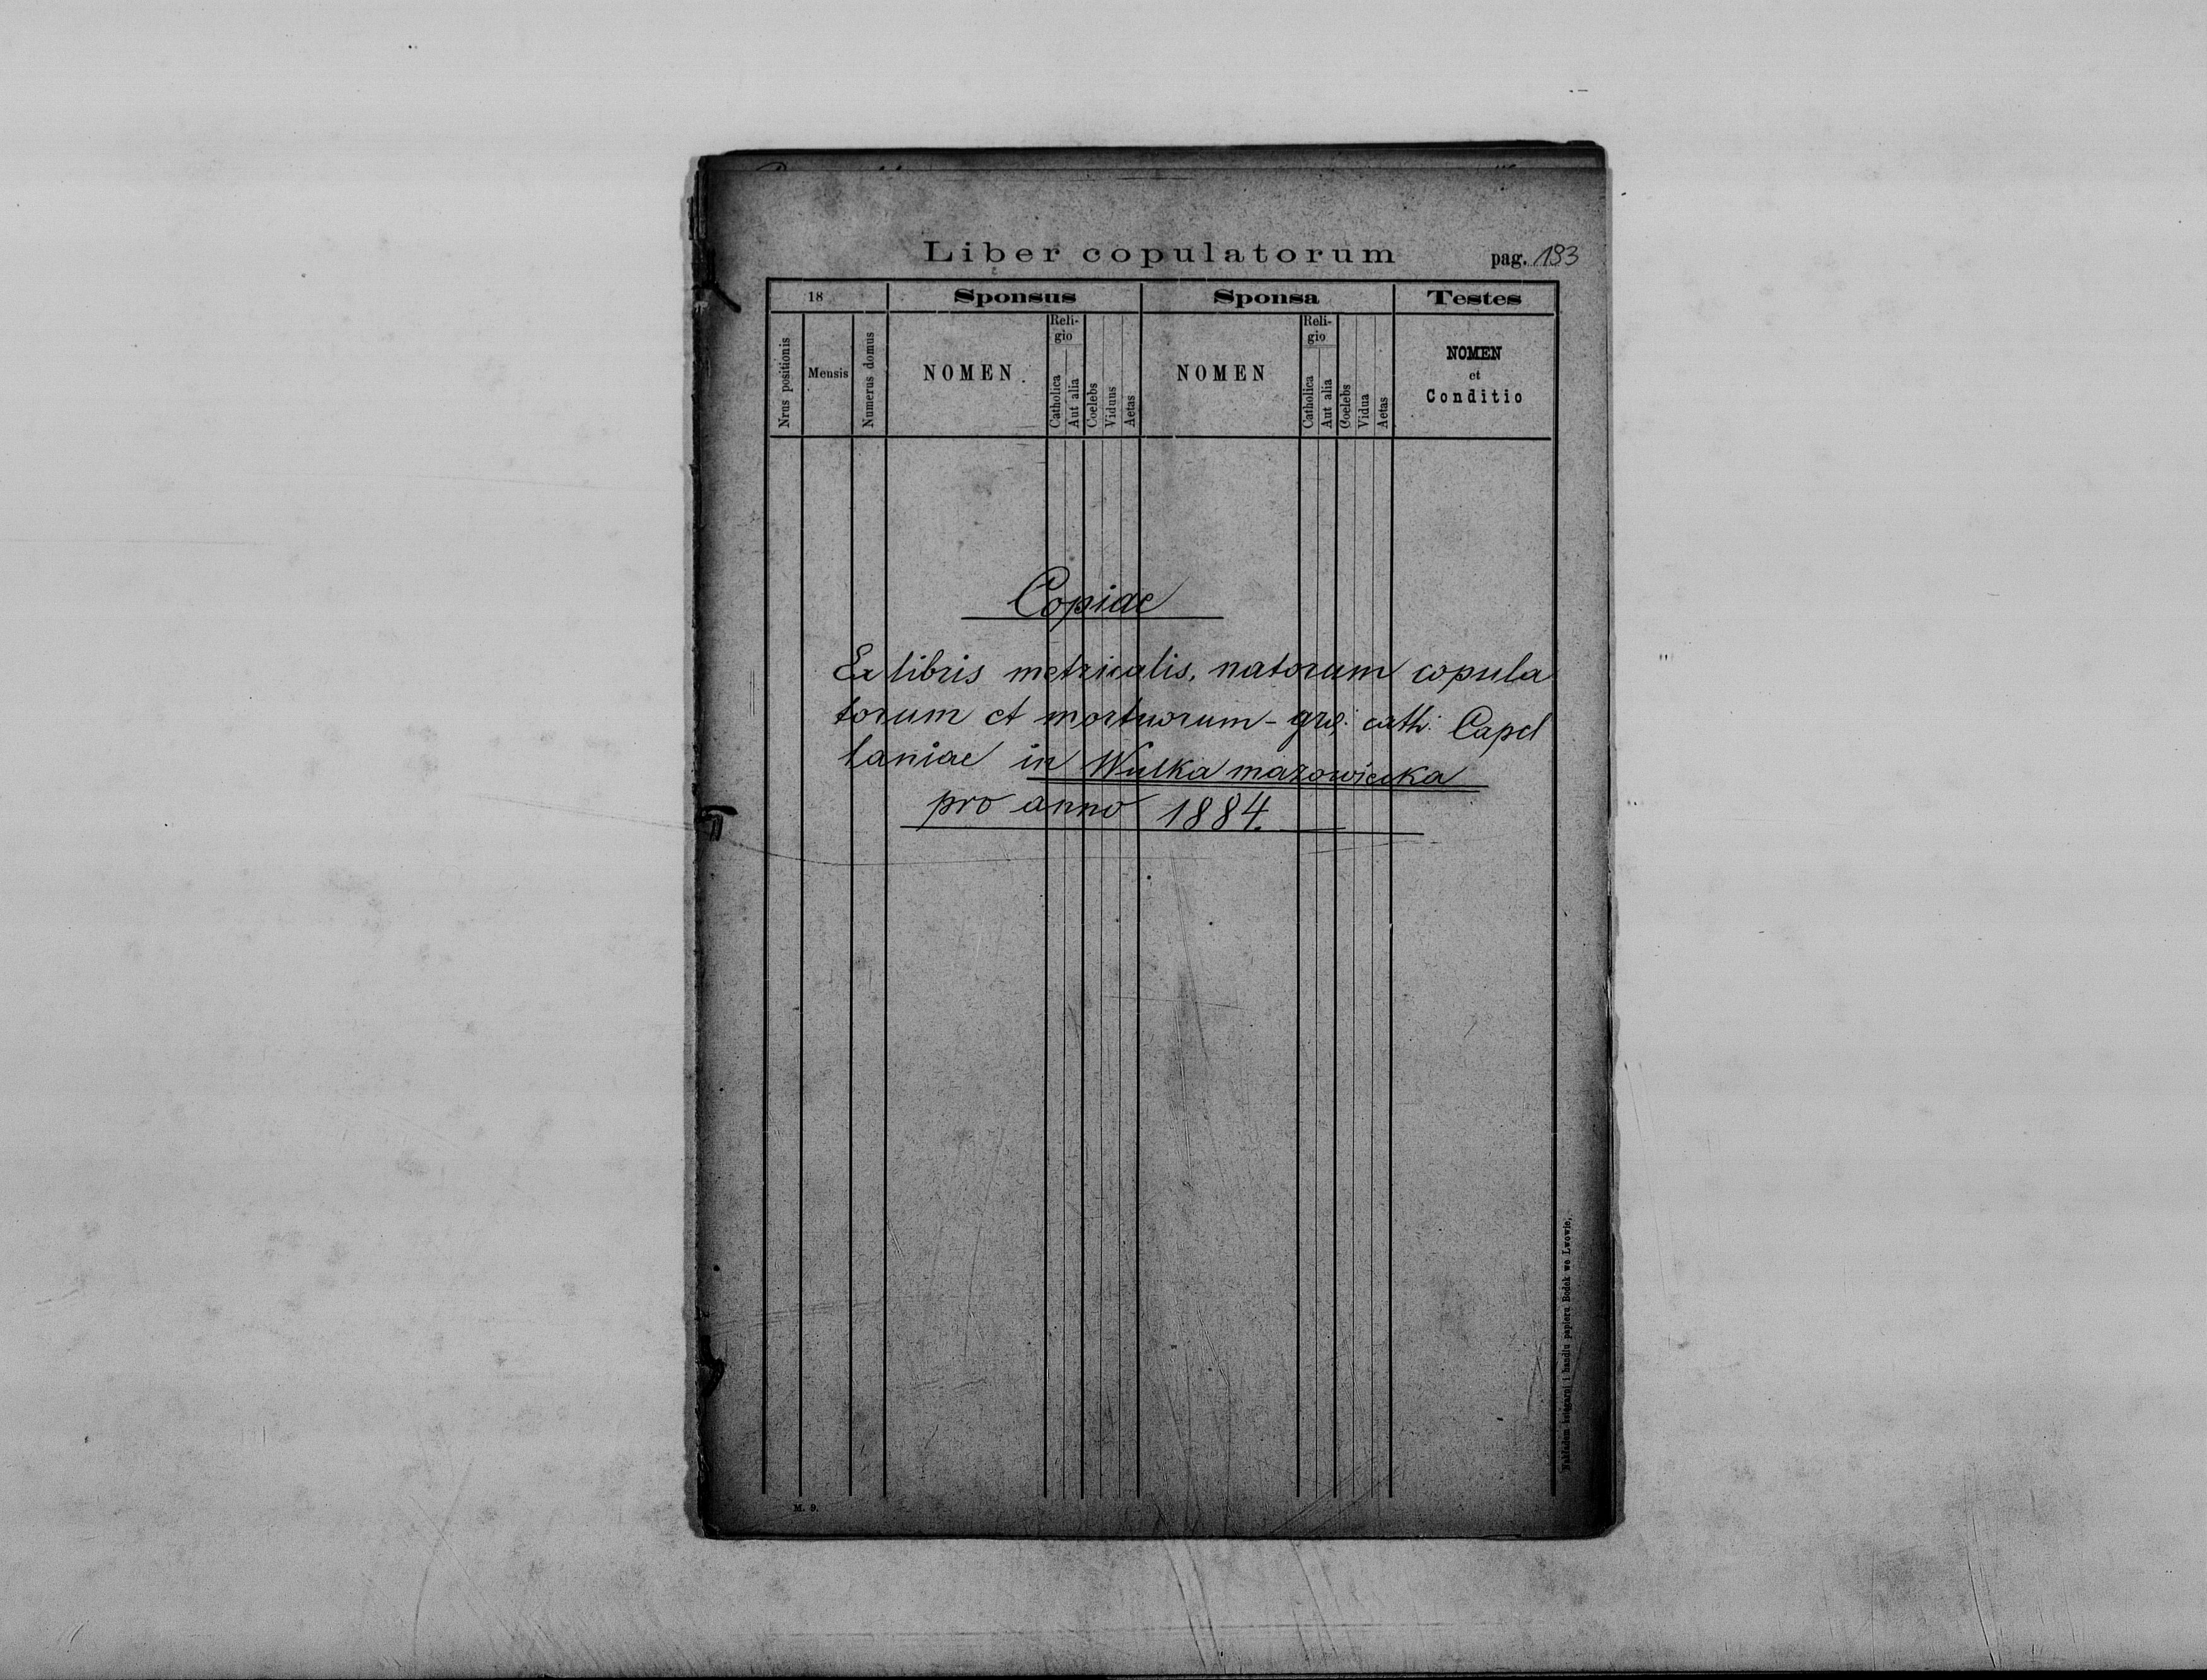 Liber copulatorum pag. 193
18 Sponsus Sponsa Testes
Nrus positionis Mensis Numerus domus NOMEN Reli-gio Catholica Aut alia Coelebs Viduus Aetas NOMEN Reli-gio Catholica Aut alia Coelebs Vidua Aetas NOMEN et Conditio
Copiae
Ex libris metricalis, natorum copula
torum et mortuorum - gre: cath: Capel
laniae in Wulka mazowiecka
pro anno 1884.
Nakładem księgarni i handlu papieru Bodek we Lwowie.
M. 9.